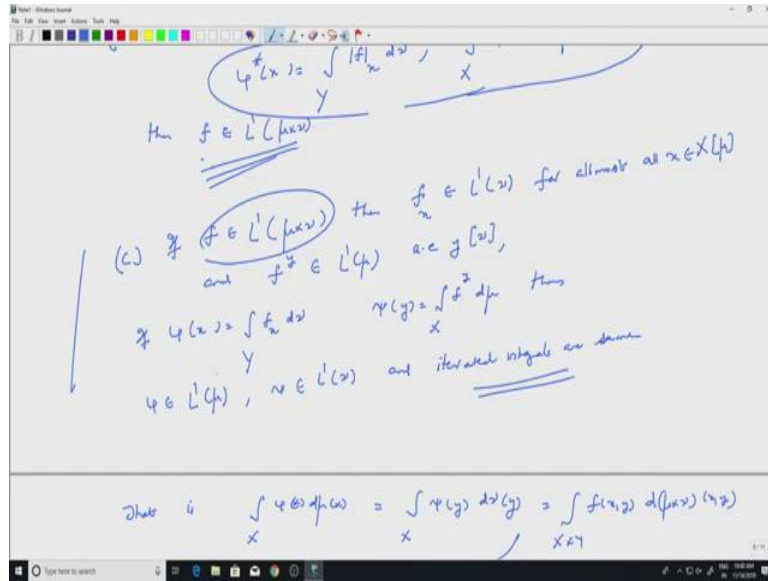 Note1 - Windows Journal
File Edit View Insert Actions Tools Help
φ*(x) = ∫_Y |f|_x dν, ∫_X
then f ∈ L¹(μ×ν)
(c) If f ∈ L¹(μ×ν) then f_x ∈ L¹(ν) for allmost all x ∈ X[μ]
and f^y ∈ L¹(μ) a.e y [ν],
If φ(x) = ∫_Y f_x dν ψ(y) = ∫_X f^y dμ then
φ ∈ L¹(μ), ψ ∈ L¹(ν) and iterated integrals are same
That is ∫_X φ(x) dμ(x) = ∫_X ψ(y) dν(y) = ∫_{X×Y} f(x,y) d(μ×ν)(x,y)
Type here to search